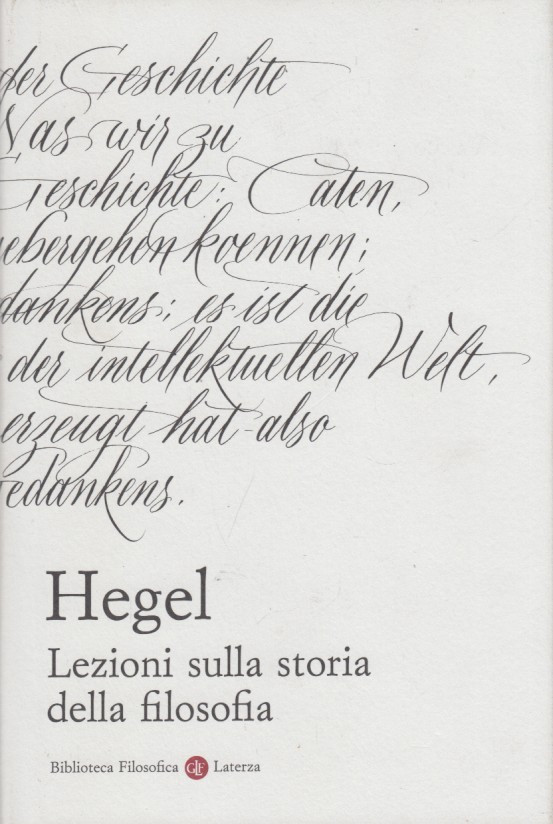 der Geschichte
Was wir zu
Geschichte: Taten,
uebergehen koennen;
dankens; es ist die
der intellektuellen Welt,
erzeugt hat also
Gedankens.
Hegel
Lezioni sulla storia
della filosofia
Biblioteca Filosofica GLF Laterza